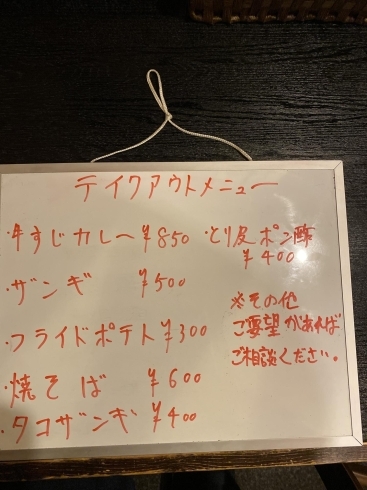 テイクアウトメニュー
・牛すじカレー ¥850
・ザンギ ¥500
・フライドポテト ¥300
・焼そば ¥600
・タコザンギ ¥400
・とり皮ポン酢
¥400
※その他
ご要望があれば
ご相談ください。